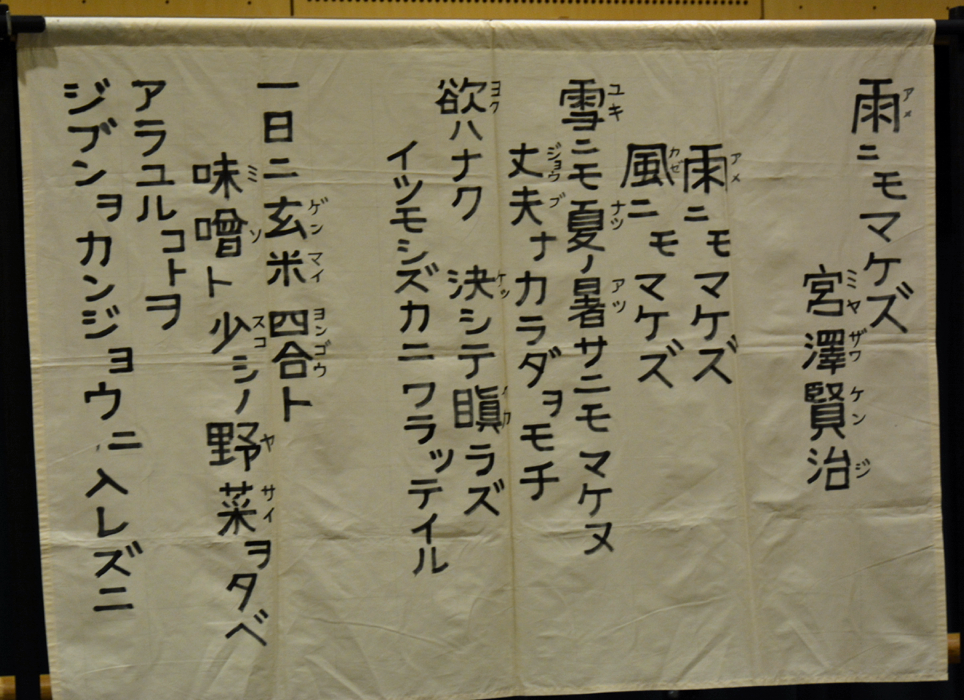 雨ニモマケズ
宮澤賢治
雨ニモマケズ
風ニモマケズ
雪ニモ夏ノ暑サニモマケヌ
丈夫ナカラダヲモチ
欲ハナク 決シテ瞋ラズ
イツモシズカニワラッテイル
一日ニ玄米四合ト
味噌ト少シノ野菜ヲタベ
アラユルコトヲ
ジブンヲカンジョウニ入レズニ